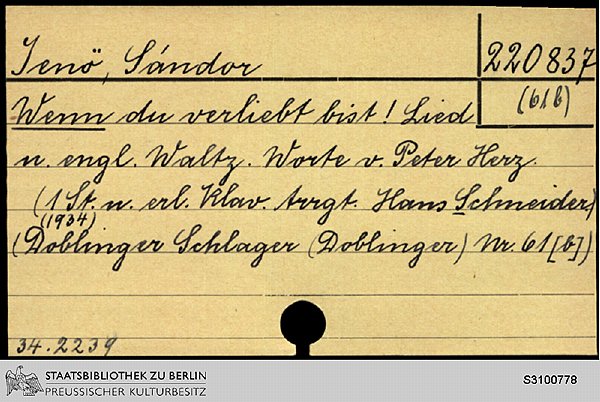 Jenö, Sándor
220837
(61b)
Wenn du verliebt bist! Lied
u. engl. Waltz. Worte v. Peter Herz.
(1 St. u. erl. Klav. Arrgt. Hans Schneider)
(1934)
(Doblinger Schlager (Doblinger) Nr. 61[b])
34.2239
STAATSBIBLIOTHEK ZU BERLIN
PREUSSISCHER KULTURBESITZ
S3100778